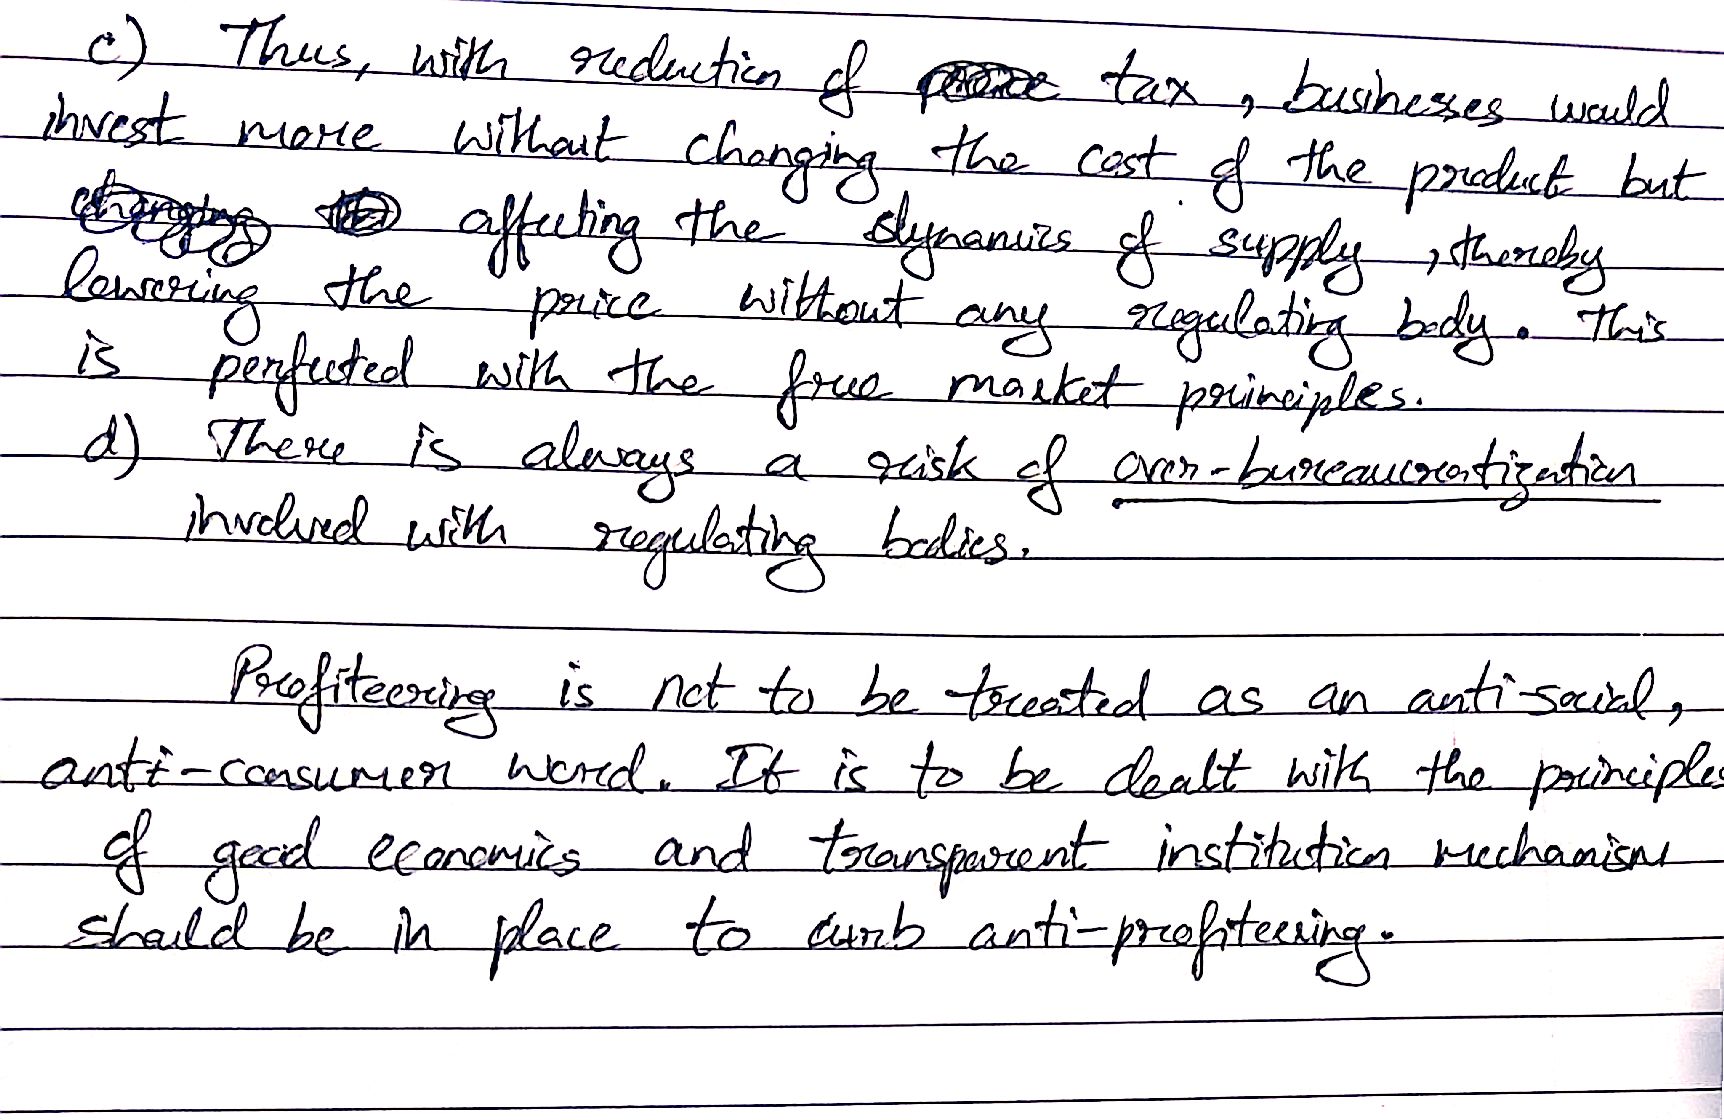 c) Thus, with reduction of tax, businesses would
invest more without changing the cost of the product but
affecting the dynamics of supply, thereby
lowering the price without any regulating body. This
is perfected with the free market principles.
d) There is always a risk of over-bureaucratization
involved with regulating bodies.
Profiteering is not to be treated as an anti-social,
anti-consumer word. It is to be dealt with the principles
of good economics and transparent institution mechanism
should be in place to curb anti-profiteering.